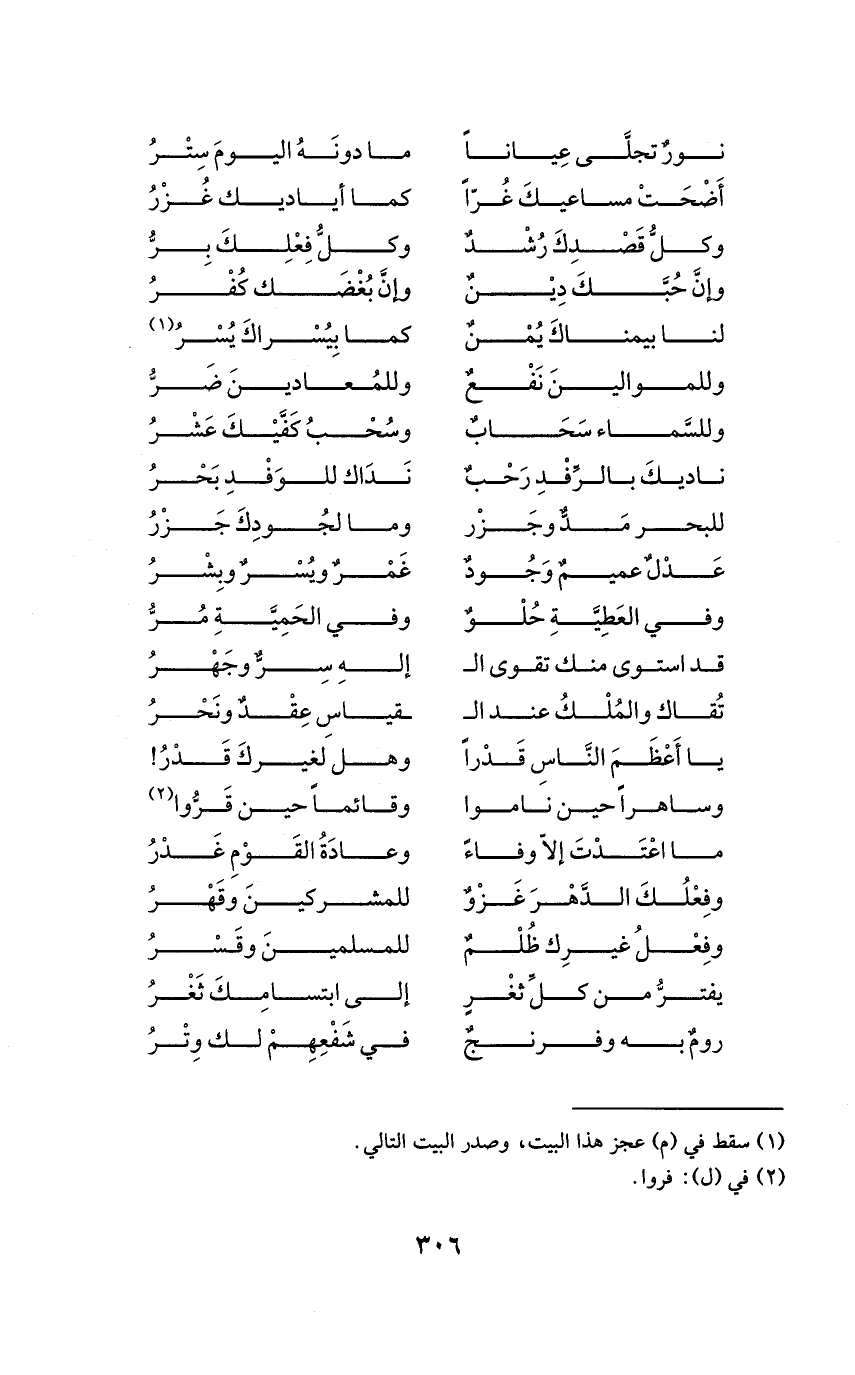 نورٌ تجلَّى عِياناً ما دونَهُ اليومَ سِتْرُ
أَضْحَتْ مساعيكَ غُرّاً كما أياديك غُزْرُ
وكلُّ قَصْدِكَ رُشْدٌ وكلُّ فِعْلِكَ بِرُّ
وإنَّ حُبَّكَ دِيْنٌ وإنَّ بُغْضَك كُفْرُ
لنا بيمناكَ يُمْنٌ كما بِيُسْراكَ يُسْرُ(١)
وللموالينَ نَفْعٌ وللمُعادينَ ضَرُّ
وللسَّماء سَحَابٌ وسُحْبُ كَفَّيْكَ عَشْرُ
ناديكَ بالرِّفْدِ رَحْبٌ نَدَاك للوَفْدِ بَحْرُ
للبحر مَدٌّ وجَزْر وما لجُودِكَ جَزْرُ
عَدْلٌ عميمٌ وَجُودٌ غَمْرٌ ويُسْرٌ وبِشْرُ
وفي العَطِيَّةِ حُلْوٌ وفي الحَمِيَّةِ مُرُّ
قد استوى منك تقوى الـ إله سِرٌّ وجَهْرُ
تُقاك والمُلْكُ عند الـ ـقياسِ عِقْدٌ ونَحْرُ
يا أَعْظَمَ النَّاسِ قَدْراً وهل لغيرِكَ قَدْرُ!
وساهراً حين ناموا وقائماً حين قَرُّوا(٢)
ما اعْتَدْتَ إلاّ وفاءً وعادَةُ القَوْمِ غَدْرُ
وفِعْلُكَ الدَّهْرَ غَزْوٌ للمشركينَ وقَهْرُ
وفِعْلُ غيرِك ظُلْمٌ للمسلمينَ وقَسْرُ
يفترُّ من كلِّ ثغْرٍ إلى ابتسامِكَ ثَغْرُ
رومٌ به وفرنجٌ في شَفْعِهِمْ لك وِتْرُ
(١) سقط في (م) عجز هذا البيت، وصدر البيت التالي.
(٢) في (ل): فروا.
٣٠٦